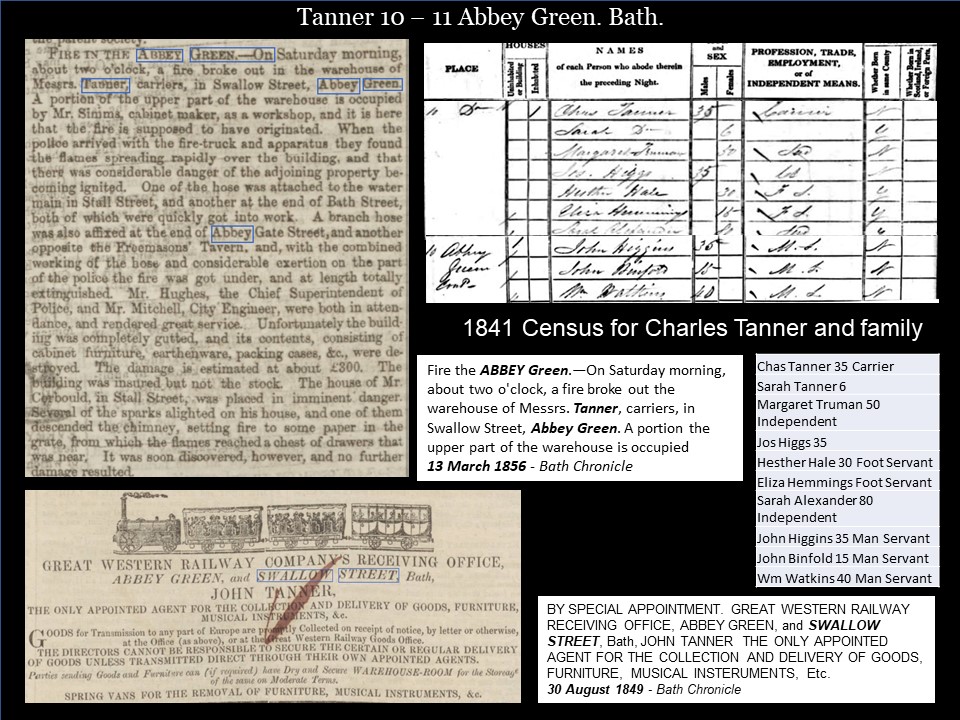 Tanner 10 – 11 Abbey Green. Bath.
the parent society.
FIRE IN THE ABBEY GREEN.—On Saturday morning,
about two o'clock, a fire broke out in the warehouse of
Messrs. Tanner, carriers, in Swallow Street, Abbey Green.
A portion of the upper part of the warehouse is occupied
by Mr. Simms, cabinet maker, as a workshop, and it is here
that the fire is supposed to have originated. When the
police arrived with the fire-truck and apparatus they found
the flames spreading rapidly over the building, and that
there was considerable danger of the adjoining property be-
coming ignited. One of the hose was attached to the water
main in Stall Street, and another at the end of Bath Street,
both of which were quickly got into work. A branch hose
was also affixed at the end of Abbey Gate Street, and another
opposite the Freemasons' Tavern, and, with the combined
working of the hose and considerable exertion on the part
of the police the fire was got under, and at length totally
extinguished. Mr. Hughes, the Chief Superintendent of
Police, and Mr. Mitchell, City Engineer, were both in atten-
dance, and rendered great service. Unfortunately the build-
ing was completely gutted, and its contents, consisting of
cabinet furniture, earthenware, packing cases, &c., were de-
stroyed. The damage is estimated at about £300. The
building was insured but not the stock. The house of Mr.
Corbould, in Stall Street, was placed in imminent danger.
Several of the sparks alighted on his house, and one of them
descended the chimney, setting fire to some paper in the
grate, from which the flames reached a chest of drawers that
was near. It was soon discovered, however, and no further
damage resulted.
PLACE
HOUSES
Uninhabited or Building
Inhabited
NAMES
of each Person who abode therein
the preceding Night.
and
SEX
Males
Females
PROFESSION, TRADE,
EMPLOYMENT,
or of
INDEPENDENT MEANS.
Whether Born in same County
Whether Born in Scotland, Ireland, or Foreign Parts.
10 Do 1 Chas Tanner 35 Carrier N
Sarah Do 6 Y
Margaret Truman 50 Ind N
Jos. Higgs 35 N
Hesther Hale 30 F. S. Y
Eliza Hemming 15 F. S. Y
Sarah Alexander 80 Ind
10 Abbey Green 1 John Higgins 35 M. S. N
John Binfold 15 M. S. N
Wm Watkins 40 M. S. N
1841 Census for Charles Tanner and family
Fire the ABBEY Green.—On Saturday morning,
about two o'clock, a fire broke out the
warehouse of Messrs. Tanner, carriers, in
Swallow Street, Abbey Green. A portion the
upper part of the warehouse is occupied
13 March 1856 - Bath Chronicle
Chas Tanner 35 Carrier
Sarah Tanner 6
Margaret Truman 50
Independent
Jos Higgs 35
Hesther Hale 30 Foot Servant
Eliza Hemmings Foot Servant
Sarah Alexander 80
Independent
John Higgins 35 Man Servant
John Binfold 15 Man Servant
Wm Watkins 40 Man Servant
GREAT WESTERN RAILWAY COMPANY'S RECEIVING OFFICE,
ABBEY GREEN, and SWALLOW STREET, Bath,
JOHN TANNER,
THE ONLY APPOINTED AGENT FOR THE COLLECTION AND DELIVERY OF GOODS, FURNITURE,
MUSICAL INSTRUMENTS, &c.
GOODS for Transmission to any part of Europe are promptly Collected on receipt of notice, by letter or otherwise,
at the Office (as above), or at the Great Western Railway Goods Office.
THE DIRECTORS CANNOT BE RESPONSIBLE TO SECURE THE CERTAIN OR REGULAR DELIVERY
OF GOODS UNLESS TRANSMITTED DIRECT THROUGH THEIR OWN APPOINTED AGENTS.
Parties sending Goods and Furniture can (if required) have Dry and Secure WAREHOUSE-ROOM for the Storage
of the same on Moderate Terms.
SPRING VANS FOR THE REMOVAL OF FURNITURE, MUSICAL INSTRUMENTS, &c.
BY SPECIAL APPOINTMENT. GREAT WESTERN RAILWAY
RECEIVING OFFICE, ABBEY GREEN, and SWALLOW
STREET, Bath, JOHN TANNER THE ONLY APPOINTED
AGENT FOR THE COLLECTION AND DELIVERY OF GOODS,
FURNITURE, MUSICAL INSTERUMENTS, Etc.
30 August 1849 - Bath Chronicle